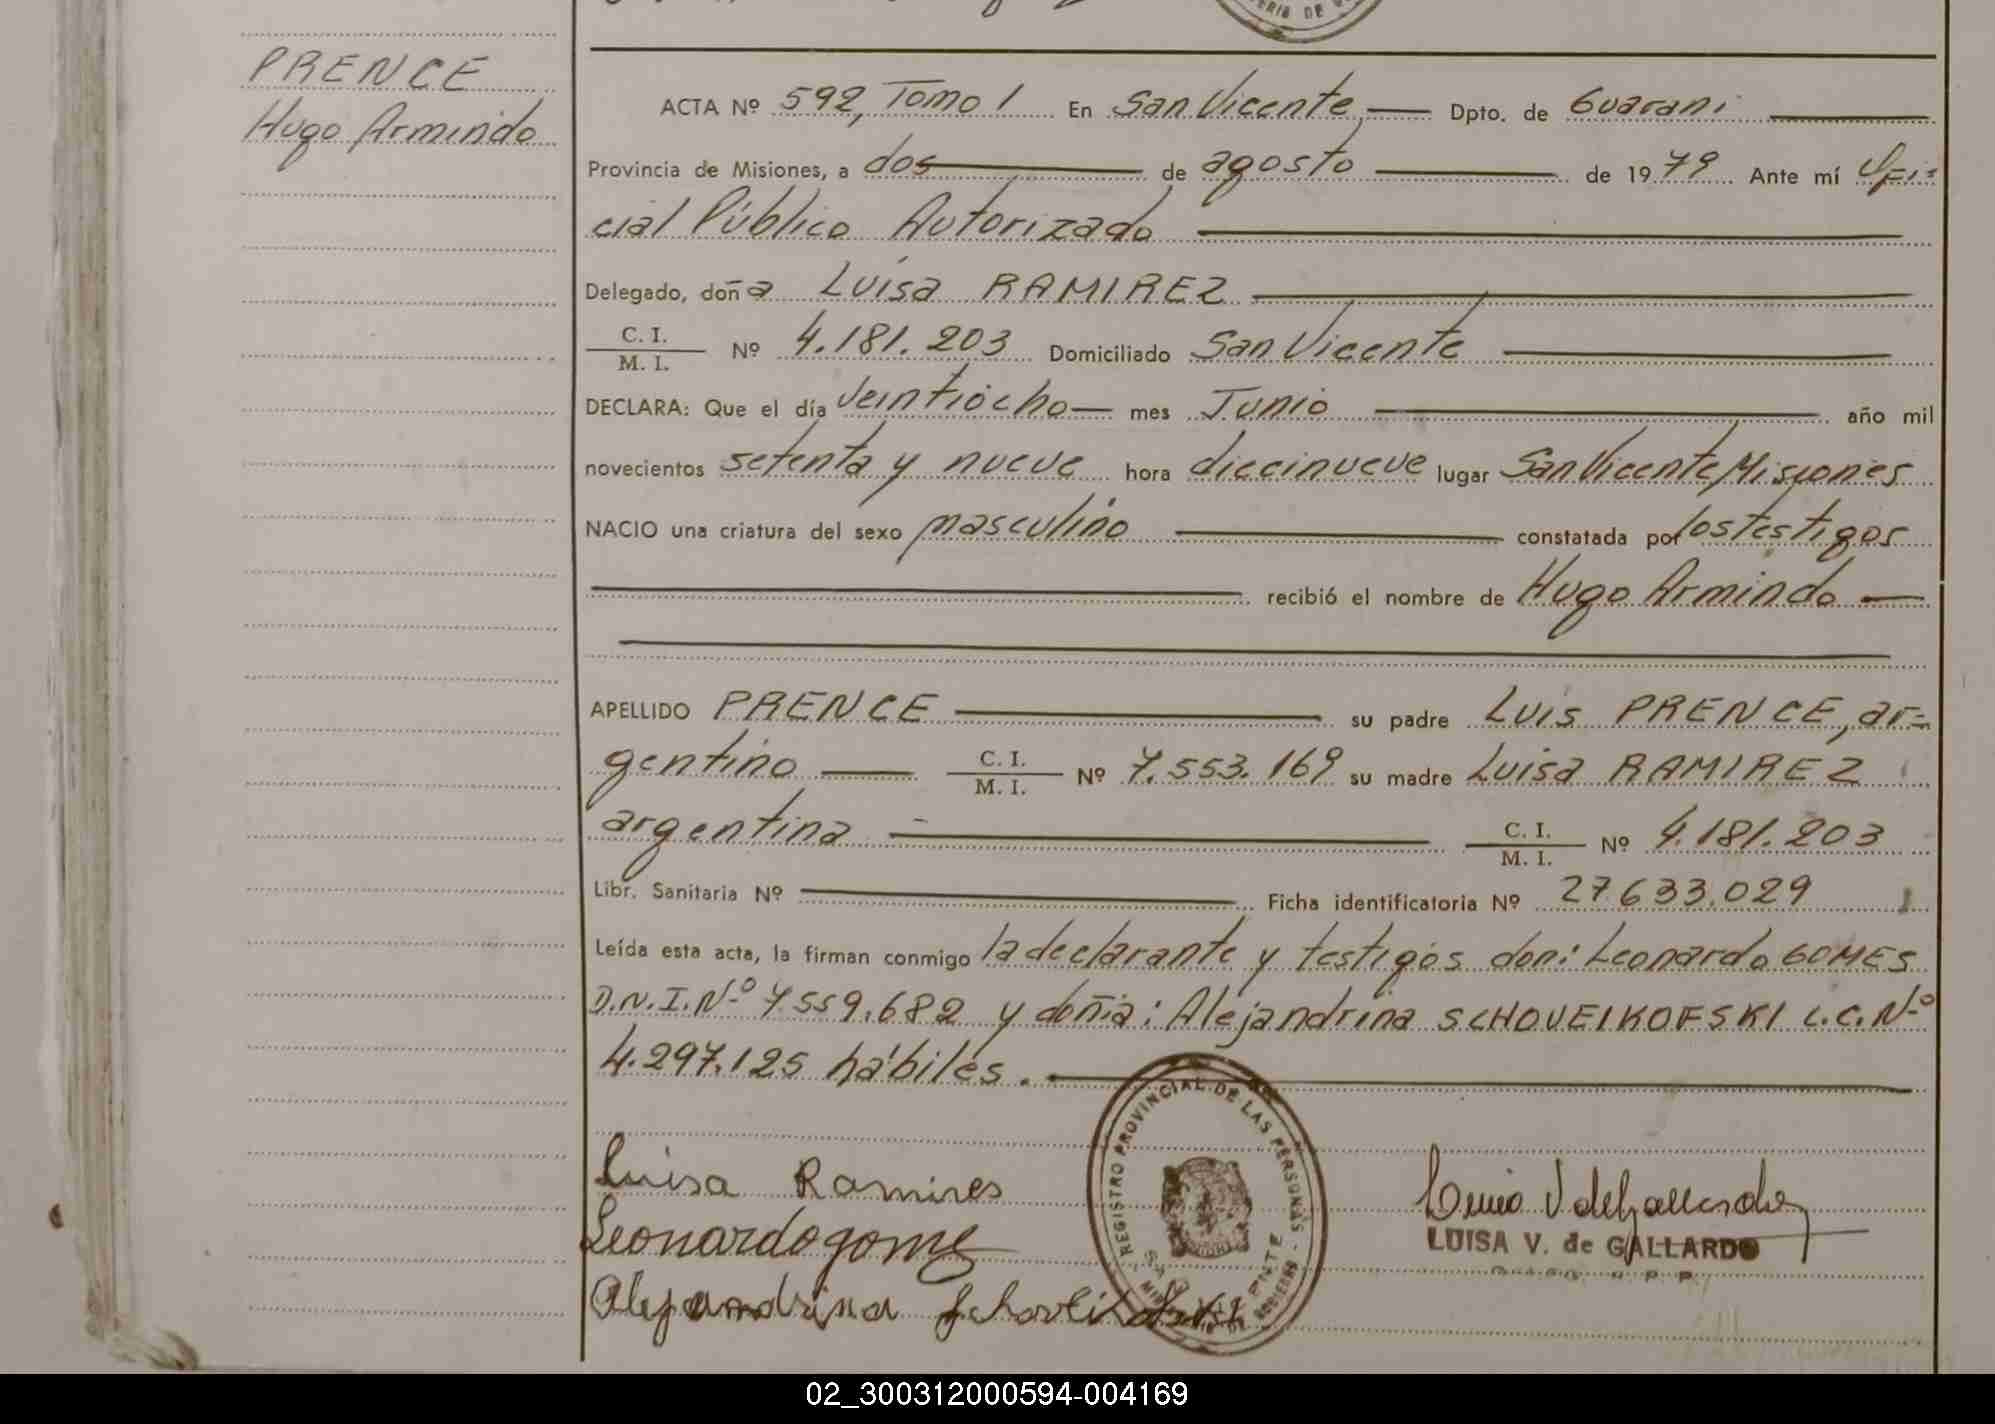 PRENCE
Hugo Armindo
ACTA Nº 592, Tomo 1 En San Vicente, Dpto. de Guarani
Provincia de Misiones, a dos de agosto de 1979 Ante mí Ofi=
cial Público Autorizado
Delegado, doña Luisa RAMIREZ
C. I.
M. I. Nº 4.181.203 Domiciliado San Vicente
DECLARA: Que el día Veintiocho mes Junio año mil
novecientos setenta y nueve hora diecinueve lugar San Vicente, Misiones
NACIO una criatura del sexo masculino constatada por los testigos
recibió el nombre de Hugo Armindo
APELLIDO PRENCE su padre Luis PRENCE, ar=
gentino C. I. M. I. Nº 7.553.169 su madre Luisa RAMIREZ
argentina C. I. M. I. Nº 4.181.203
Libr. Sanitaria Nº Ficha identificatoria Nº 27.633.029
Leída esta acta, la firman conmigo la declarante y testigos don: Leonardo GOMES
D.N.I. Nº 7.559.682 y doña: Alejandrina SCHOVEIKOFSKI L.C. Nº
4.297.125 hábiles.
Luisa Ramires
Leonardo gomes
Alejandrina
REGISTRO PROVINCIAL DE LAS PERSONAS
LUISA V. de GALLARDO
02_300312000594-004169